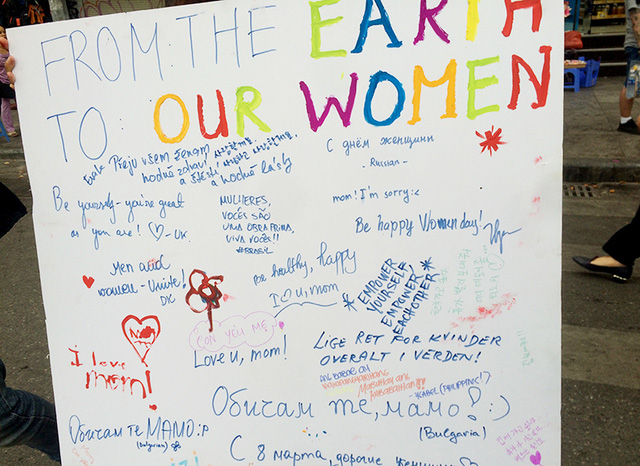 FROM: THE EARTH
TO: OUR WOMEN
Přeju všem ženám
hodně zdraví
a štěstí a hodně lásky
С днём женщини
- Russian -
mom! I'm sorry :c
Be yourself - you're great
as you are! ♡ - UK
MULHERES,
VOCÊS SÃO
UMA OBRA PRIMA,
VIVA VOCÊS!!
#BRASIL
Be happy Women day!
Men and
women - Unite!
DK
Be healthy, happy
I ♡ u, mom
*EMPOWER
YOURSELF,
EMPOWER
EACHOTHER*
CON YÊU MẸ
Love u, mom!
LIGE RET FOR KVINDER
OVERALT I VERDEN!
I love
mom!
MABUHAY ANG
KABABAIHAN!!!
(PHILIPPINES!)
Обичам те, мамо! :)
(Bulgaria)
Обичам те МАМО :P
(Bulgarian)
С 8 марта, дорогие женщины